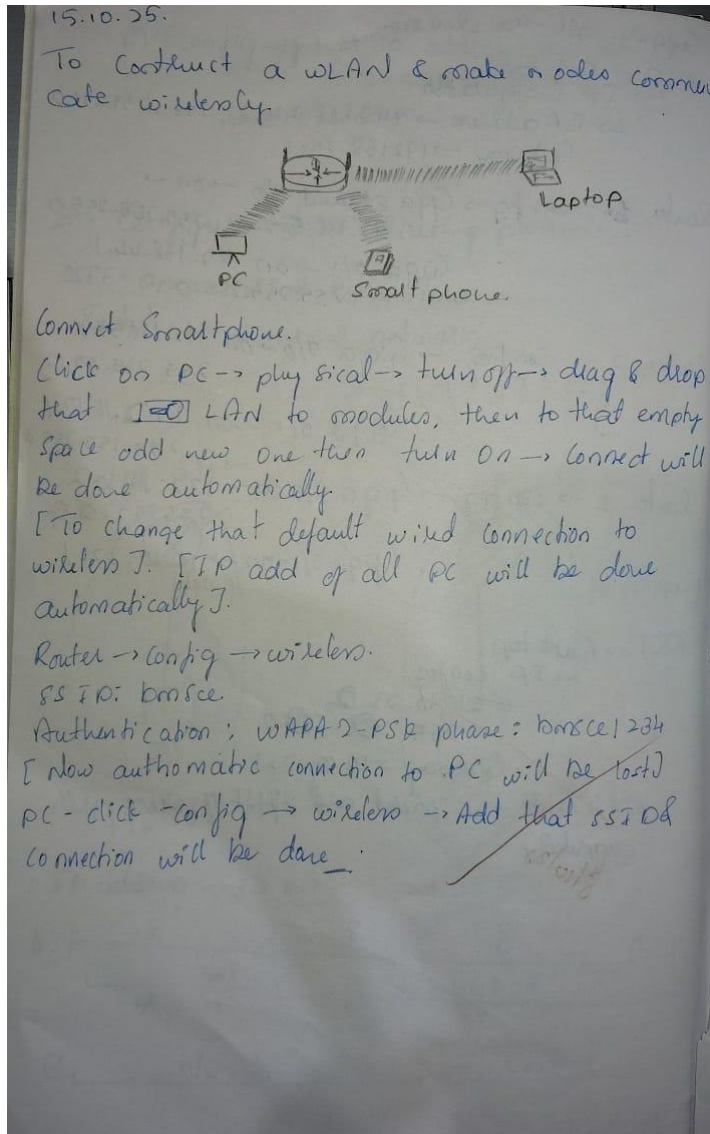 15.10.25.
To Construct a WLAN & make nodes commu
cate wirelessly.
Laptop
PC
Smart phone.
Connect Smartphone.
Click on PC -> physical -> turn off -> drag & drop
that LAN to modules, then to that empty
Space add new one then turn on -> Connect will
be done automatically.
[To change that default wired connection to
wireless]. [IP add of all PC will be done
automatically].
Router -> Config -> wireless.
SSID: bmsce
Authentication: WAPA2-PSK phase: bmsce1234
[Now authomatic connection to PC will be lost]
PC - click - config -> wireless -> Add that SSID &
connection will be done.